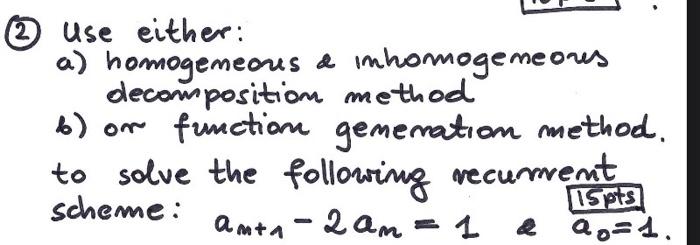 ② Use either:
a) homogeneous & inhomogeneous
decomposition method
b) or function generation method.
to solve the following recurrent
scheme:
15pts
aₙ₊₁ - 2aₙ = 1 & a₀=1.